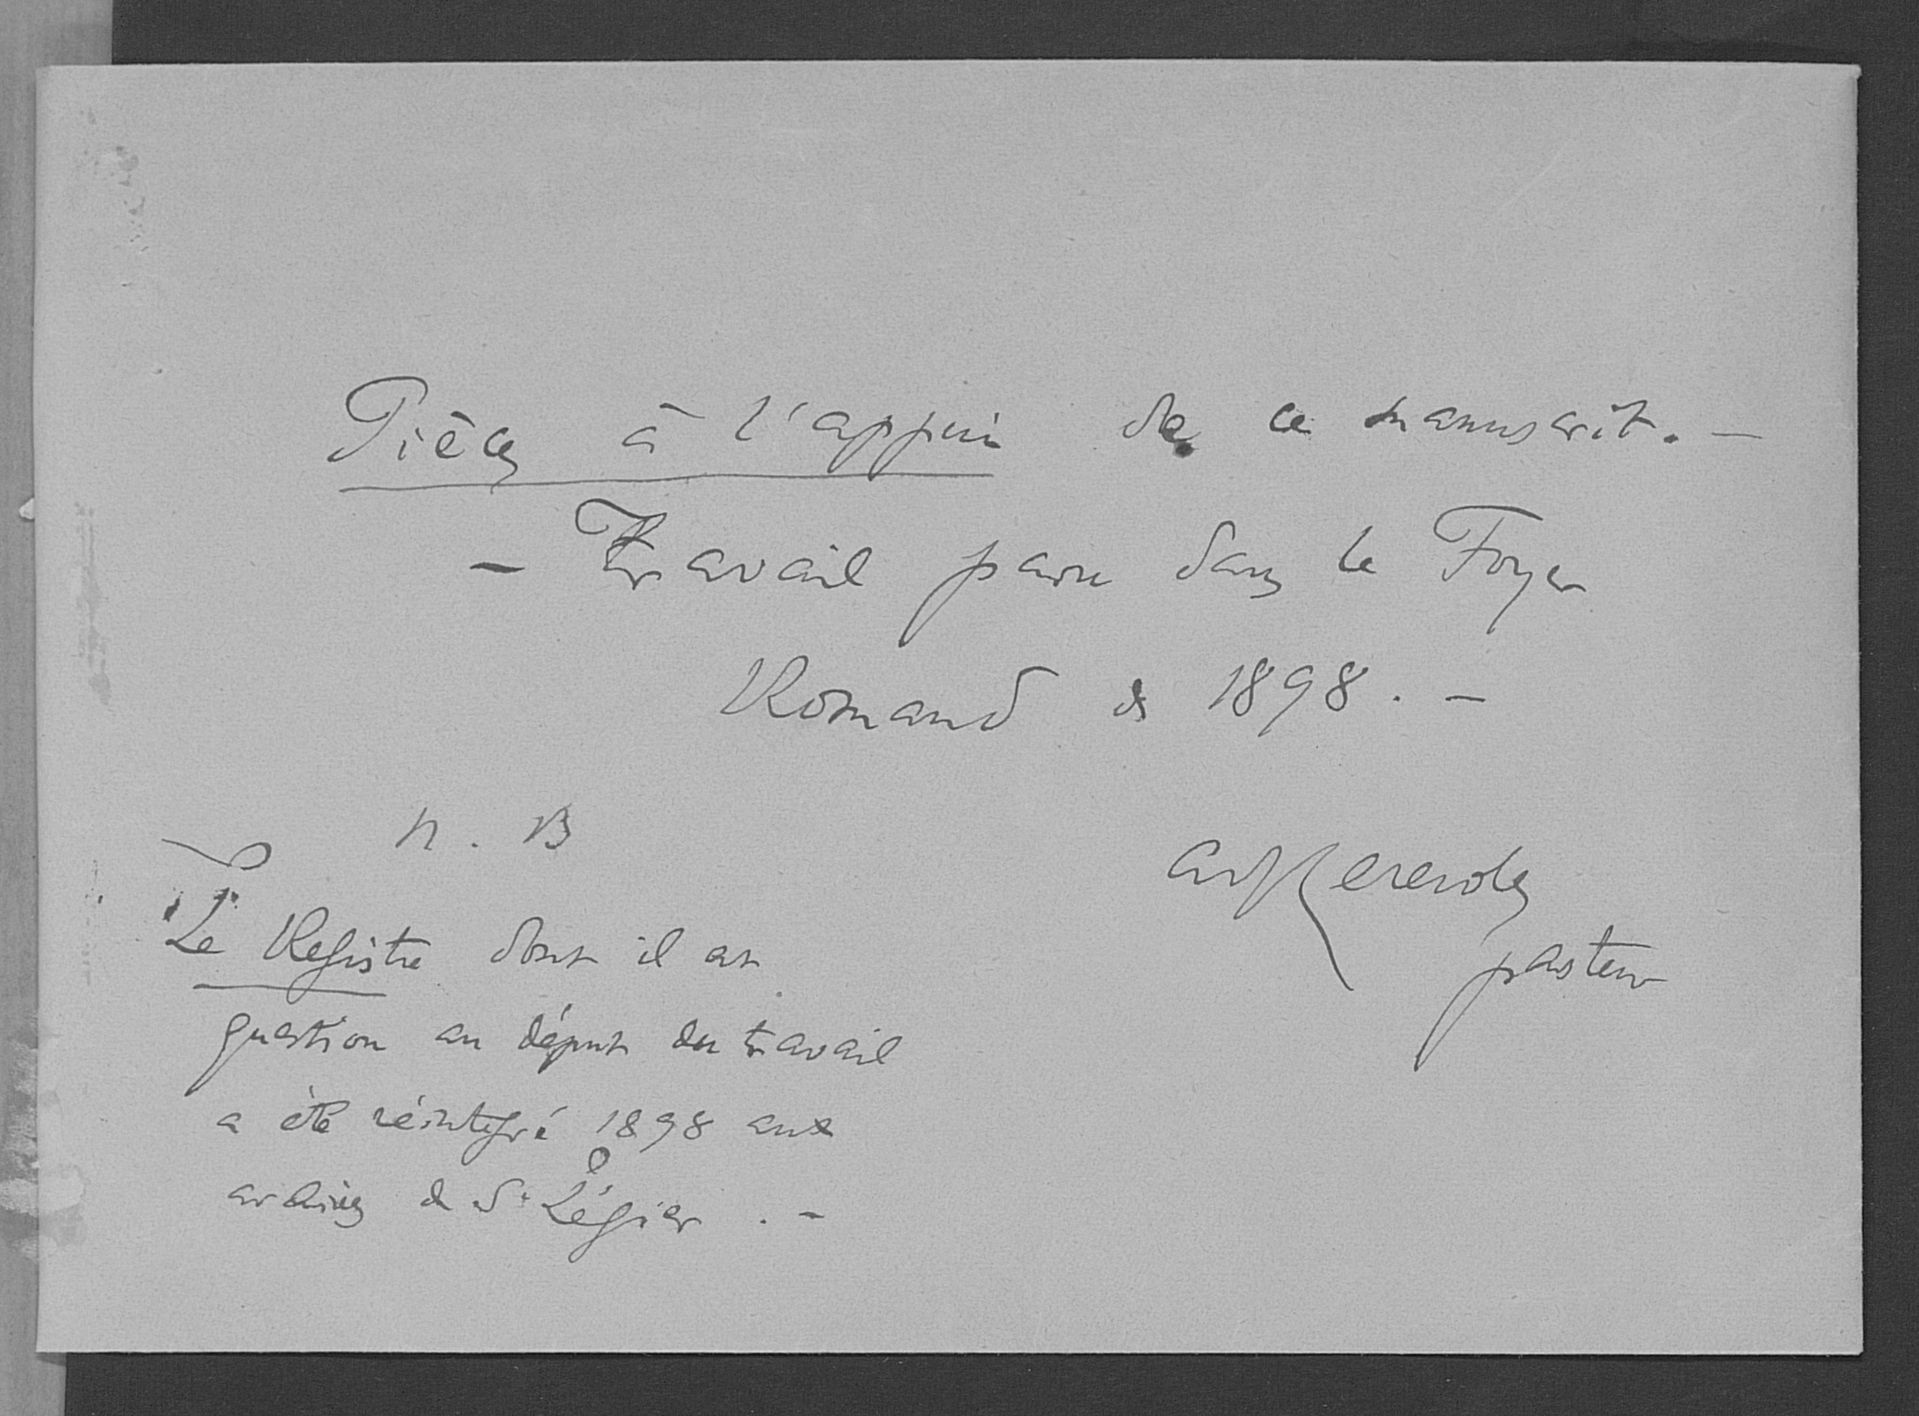 Pièces à l'appui de ce manuscrit. —
— Travail paru dans le Foyer
Romand de 1898. —
N. B
Le Registre dont il est
question au début du travail
a été réintégré 1898 aux
archives de St Légier. —
pasteur